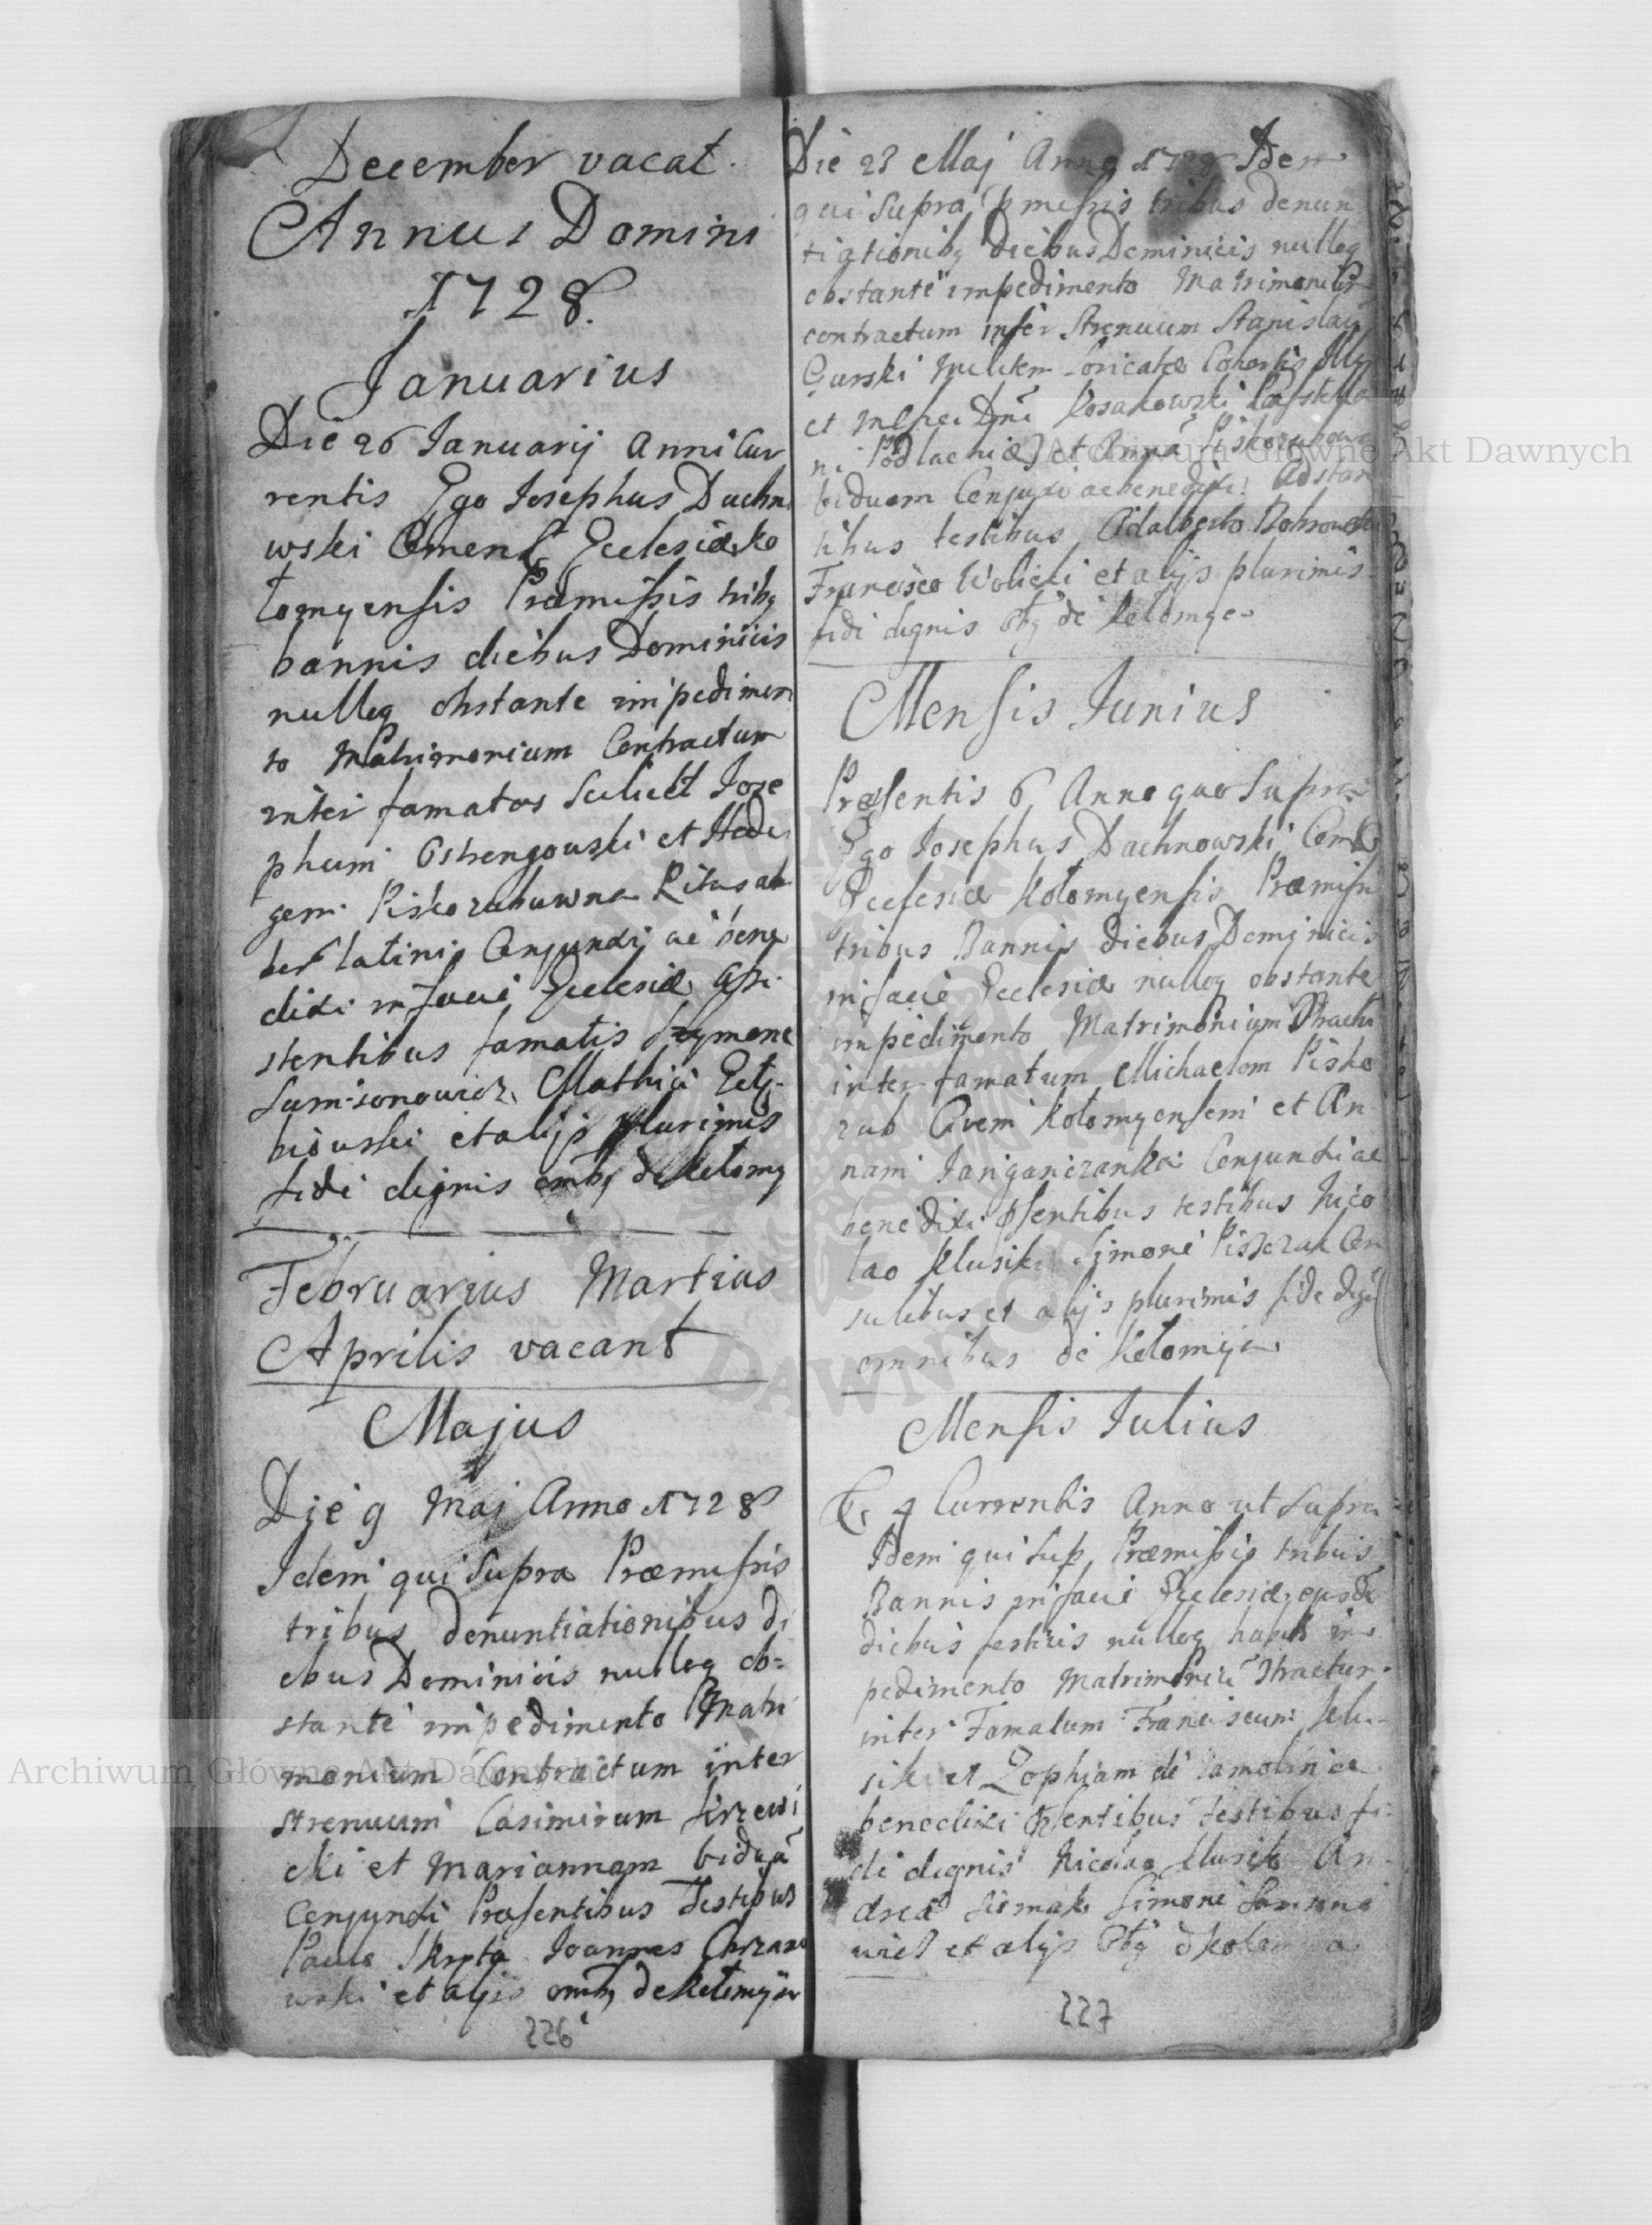 December vacat.
Annus Domini
1728.
Januarius
Die 26 Januarij Anni Cur
rentis Ego Josephus Dachno
wski Ecclesiæ Ko
łomyensis Præmissis tribq
bannis diebus Dominicis
nulloq obstante impedimen
to Matrimonium Contractum
inter famatos Scilicet Jose
phum Ostrengowski et Hedui
gem Piskozubuwna Ritus
latini Conjunxi ac bene
dixi in facie Ecclesiæ Assi
stentibus famatis Szymone
Samsonowicz, Mathia
biowski et alijs plurimis
fide dignis ombq de Kołomy
Februarius Martius
Aprilis vacant
Majus
Die 9 Maj Anno 1728
Idem qui Supra Præmissis
tribus denuntiationibus di
ebus Dominicis nulloq ob=
stante impedimento Matri
monium Contractum inter
strenuum Casimirum Krzewi
cki et Mariannam viduã
Conjunxi Præsentibus Testibus
Paulo Joannes Chrzano
wski et alijs ombq de Kołomyia
226
Die 23 Maj Anno 1728 Idem
qui Supra pmissis tribus denun
tiationibq diebus Dominicis nulloq
obstante impedimento
contractum inter Strenuum Stanislaũ
Gurski Militem Loricatæ Cohortis Illq
et Dñi Kosakowski Castella
ni Podlachiæ et Annã
viduam Conjunxi ac benedixi Adstan
tibus testibus Adalberto
Francisco Wolicki et alijs plurimis
fide dignis de Kołomye
Mensis Junius
Præsentis 6 Anno quo Supra
Ego Josephus Dachnowski
Ecclesiæ Kołomyensis Præmissi
tribus Bannis diebus Dominicis
in facie Ecclesiæ nulloq obstante
impedimento Matrimonium
inter famatum Michaelem Pisko
zub Civem Kołomyensem et An
nam Conjunxi ac
benedixi psentibus testibus Nico
lao Klusik Simone Con
sulibus et alijs plurimis fide digni
omnibus de Kołomyia
Mensis Julius
4 Currentis Anno ut Supra
Idem qui Sup Præmissis tribus
Bannis in facie Ecclesiæ
diebus festivis nulloq im
pedimento
inter Famatum Franciscum Klu
sik et Zophiam de
benedixi psentibus Testibus fi
de dignis Nicolao Klusik An
drea Simone Samsono
wicz et alijs
227
Archiwum Główne Akt Dawnych
Archiwum Główne Akt Dawnych